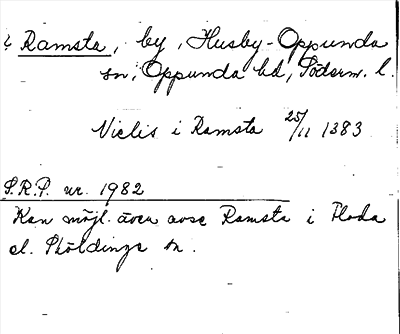 i Ramsta, by, Husby-Oppunda
sn, Oppunda hd, Söderm. l.
Niclis i Ramsta 25/11 1383
S.R.P. nr. 1982
Kan möjl. även avse Ramsta i Floda
el. Sköldinge sn.